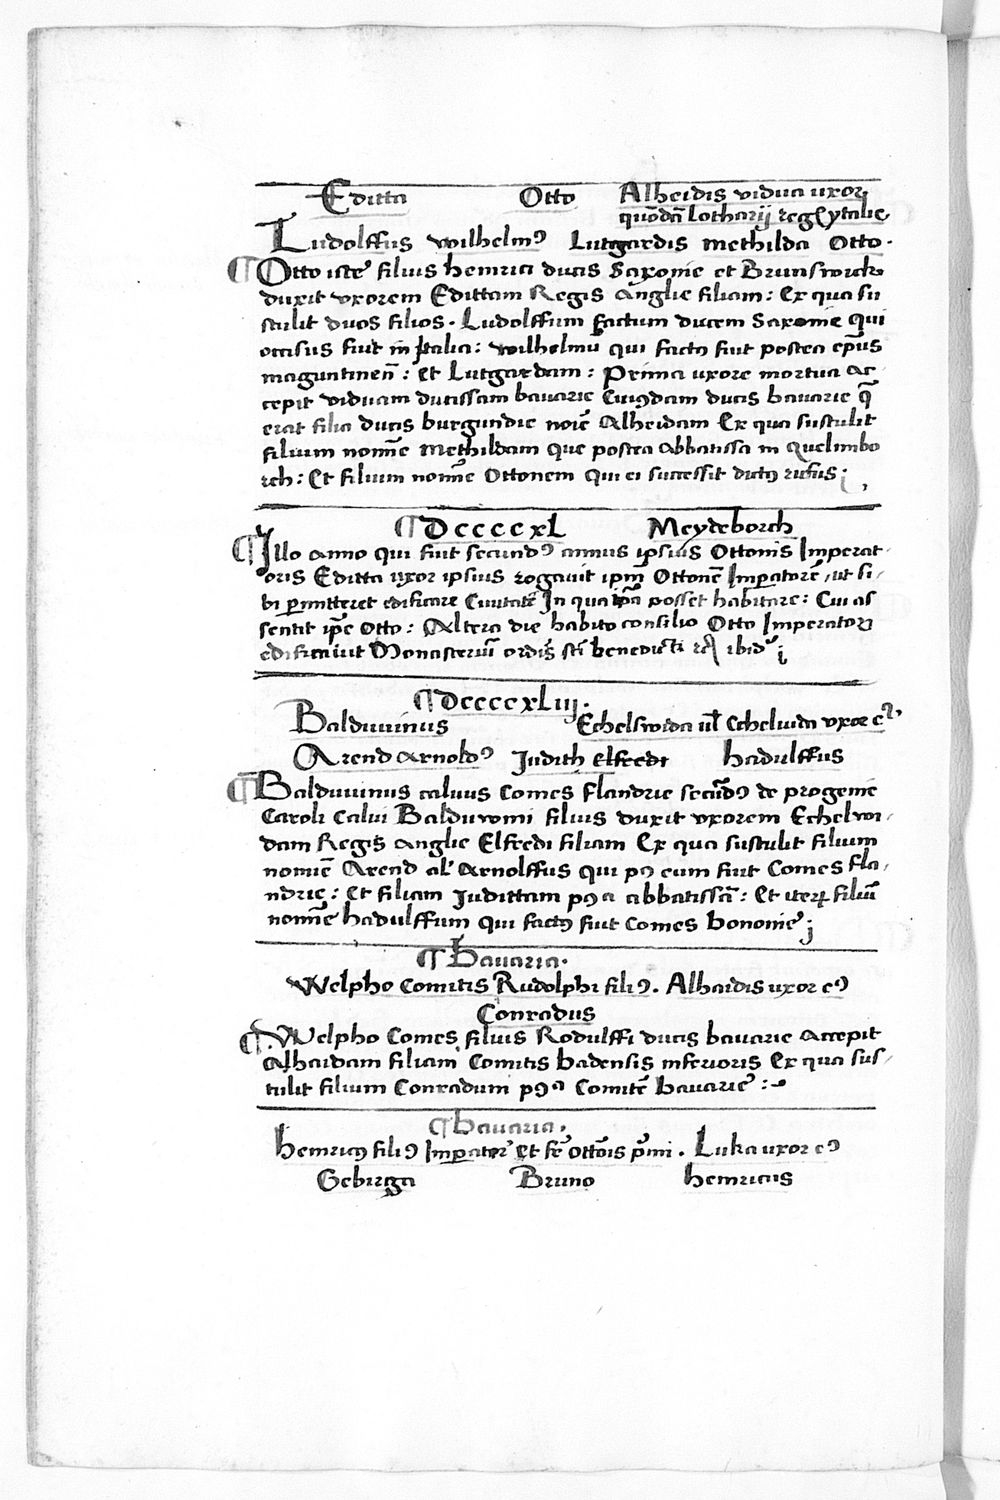 Editta Otto Alheidis vidua uxor
quōdā Lotharij reg ytalie
Ludolffus wilhelmꝰ Lutgardis Methilda Otto.
¶ Otto iste filius henrici ducis Saxonie et Brunswick
duxit vxorem Edittam Regis Anglie filiam: Ex qua su
stulit duos filios. Ludolffum factum ducem Saxonie qui
occisus fuit in Italia: wilhelmū qui factꝰ fuit postea ep̄us
maguntinen̄: Et Lutgardam: Prima uxore mortua ac-
cepit viduam ducissam bauarie Cuiusdam ducis bauarie q̄
erat filia ducis burgundie noīe Alheidam Ex qua sustulit
filium nomīe Methildam que postea abbatissa in Quelinbo
rch: Et filium nomīe Ottonem qui ei successit dictꝰ rufus;
¶ Dccccxl Meydeborch
¶ Illo anno qui fuit secundꝰ annus ipsius Ottonis Imperat-
oris Editta uxor ipsius rogauit ipm̄ Ottonē Imꝑatorē, ut si-
bi ꝑmitteret edificare Ciuitatē In qua ip̄a posset habitare: Cui as
sentit ip̄e Otto: Altera die habito consilio Otto Imperator
edificauit Monasteriū ordis̄ sc̄i benedicti ibid;
¶ Dccccxliij.
Balduuinus Echelswida ul̄ Echeluida vxor eꝰ
Arend Arnoldꝰ Judith Elfredi hadulffus
¶ Balduuinus caluus Comes flandrie secūdꝰ de progenie
Caroli Calui Balduwini filius duxit vxorem Echelwi-
dam Regis Anglie Elfredi filiam Ex qua sustulit filium
nomīe Arend al̄ Arnolffus qui pꝰ eum fuit Comes fla-
ndrie: Et filiam Judittam pꝰea abbatissā: Et iteꝝ filiū
nomīe hadulffum qui factꝰ fuit Comes bononie;
¶ Bauaria.
Welpho Comitis Rudolphi filiꝰ. Alhaidis uxor eꝰ
Conradus
¶ Welpho Comes filius Rodulffi ducis bauarie accepit
Alhaidam filiam Comitis badensis inferioris Ex qua sus-
tulit filium Conradum pꝰa Comitē bauarie:
¶ bauaria.
henricꝰ filiꝰ Imꝑator et fr̄ ottōis p̄mi. Luka uxor eꝰ
Gebirga Bruno henricus